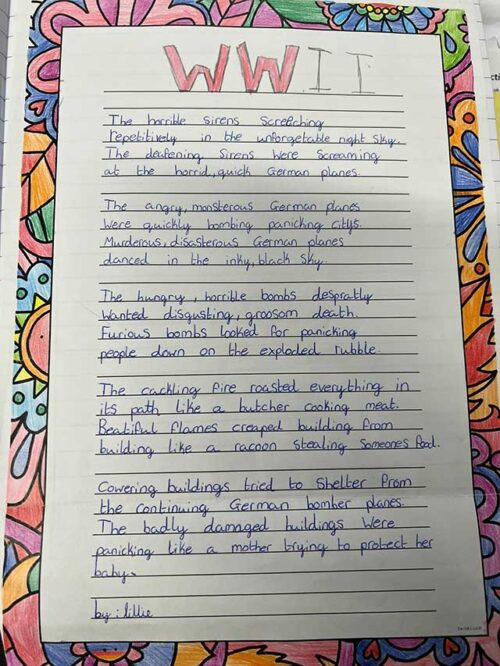 WWII
The horrible sirens screaching
repetitively in the unforgetable night sky.
The deafening sirens were screaming
at the horrid, quick German planes.
The angry, monsterous German planes
were quickly bombing panicking citys.
Murderous, disasterous German planes
danced in the inky, black sky.
The hungry, horrible bombs despratly
wanted disgusting, groosom death.
Furious bombs looked for panicking
people down on the exploded rubble.
The cackling fire roasted everything in
its path like a butcher cooking meat.
Beatiful flames creaped building from
building like a racoon stealing someones food.
Cowering buildings tried to shelter from
the continuing German bomber planes.
The badly damaged buildings were
panicking like a mother trying to protect her
baby.
by: lillie